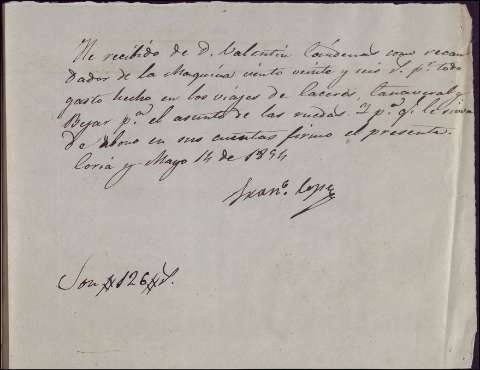 He recibido de D. Valentin Cárdenas como recau
dador de la Maquina ciento veinte y seis r.s p.r todo
gasto hecho en los viajes de Caceres, Cañaveral y
Bejar p.a el asunto de las ruedas. Y p.a q.e le sirva
de abono en sus cuentas firmo el presente.
Coria y Mayo 14 de 1854
Fran.co Lopez
Son #126# r.s